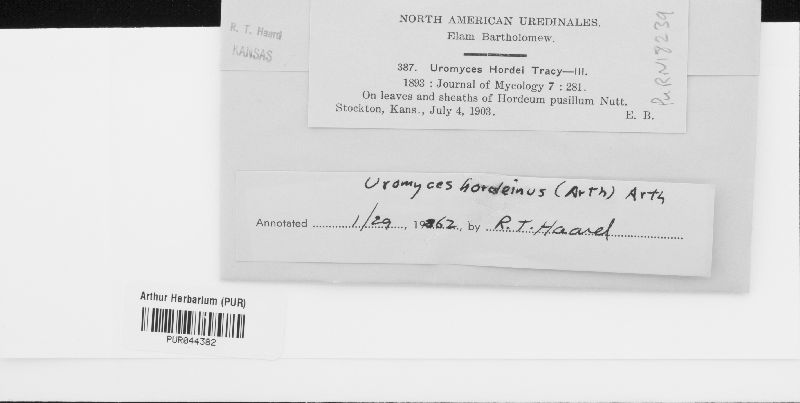 R. T. Haard
KANSAS
NORTH AMERICAN UREDINALES.
Elam Bartholomew.
387. Uromyces Hordei Tracy—III.
1893 : Journal of Mycology 7 : 281.
On leaves and sheaths of Hordeum pusillum Nutt.
Stockton, Kans., July 4, 1903.
E. B.
PURN18239
Uromyces hordeinus (Arth) Arth
Annotated 1/29, 1962, by R. T. Haard
Arthur Herbarium (PUR)
PUR044382